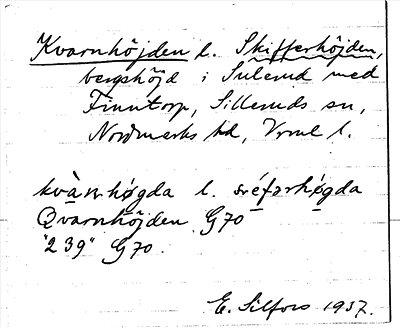 Kvarnhöjden l. Skifferhöjden,
bergshöjd i Sulerud med
Finntorp, Silleruds sn,
Nordmarks hd, Vrml l.
kvàrnhøgda l. sǿfərhøgda
Qvarnhöjden G70
"239" G70.
E. Silfors 1937.